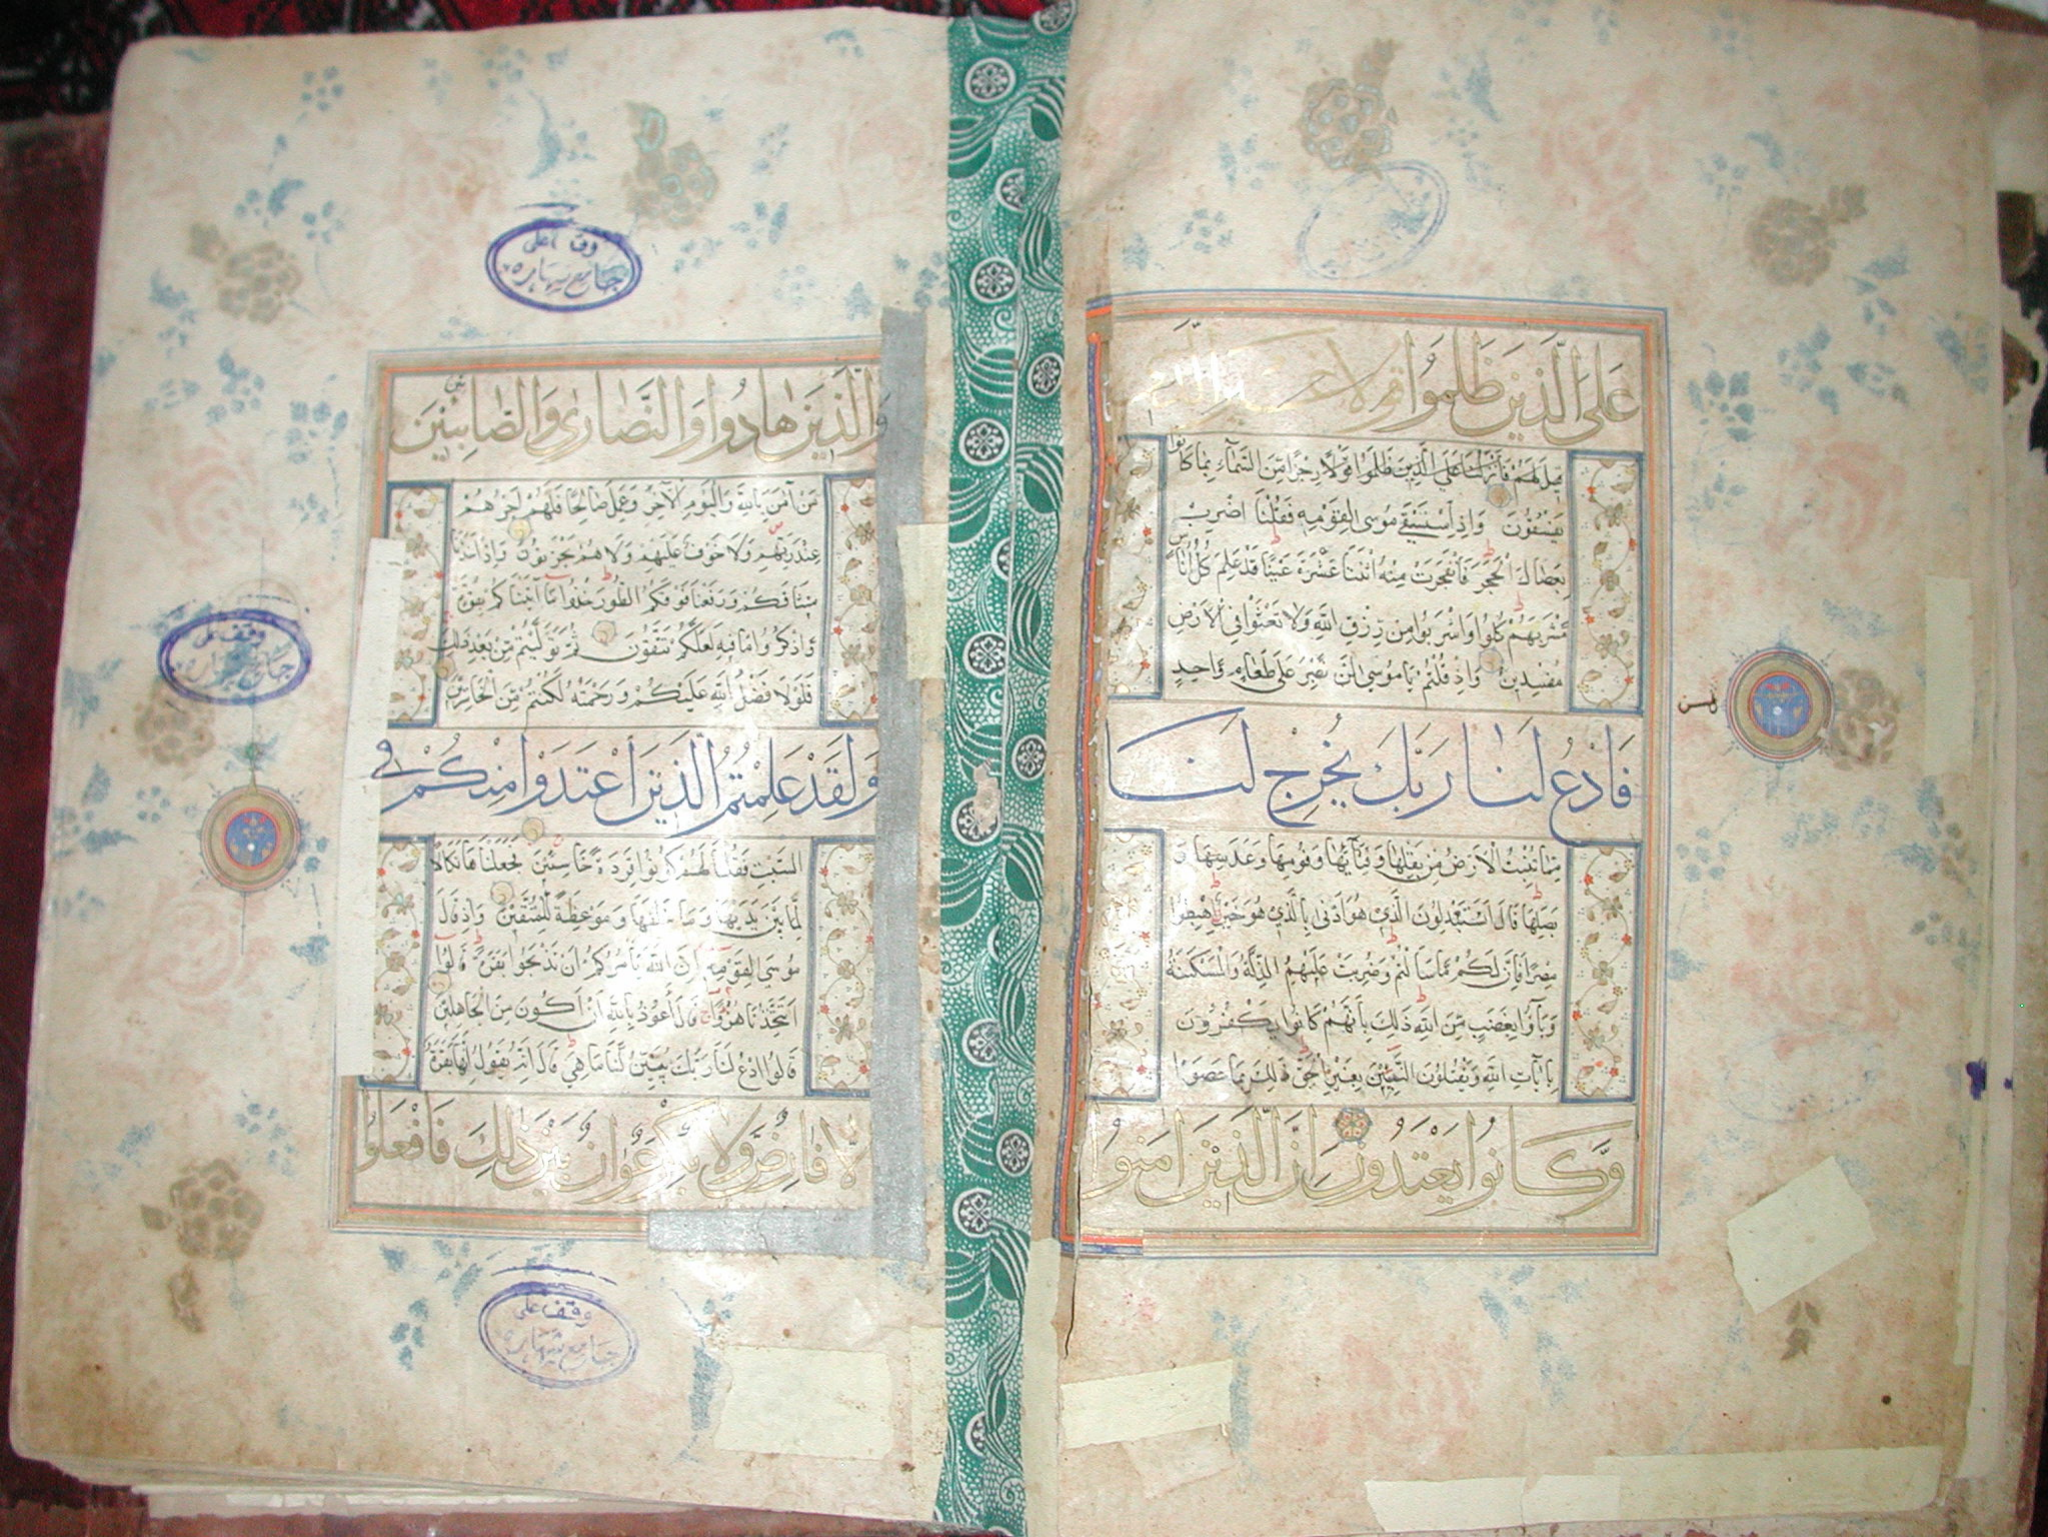 عَلَى الَّذِينَ ظَلَمُوا قولا غير الذي
قيل لهم فأنزلنا على الذين ظلموا قولا رجزا من السماء بما كانوا
يفسقون واذ استسقى موسى لقومه فقلنا اضرب
بعصاك الحجر فانفجرت منه اثنتا عشرة عينا قد علم كل اناس
مشربهم كلوا واشربوا من رزق الله ولا تعثوا في الارض
مفسدين واذ قلتم يا موسى لن نصبر على طعام واحد
فادع لنا ربك يخرج لنا
مما تنبت الارض من بقلها وقثآئها وفومها وعدسها و
بصلها قال اتستبدلون الذي هو ادنى بالذي هو خير اهبطوا
مصرا فان لكم ما سالتم وضربت عليهم الذلة والمسكنة
وبآؤا بغضب من الله ذلك بانهم كانوا يكفرون
بآيات الله ويقتلون النبيين بغير الحق ذلك بما عصوا
وكانوا يعتدون ان الذين امنوا
وقف على
جامع شهاره
والذين هادوا والنصارى والصابئين
من آمن بالله واليوم الآخر وعمل صالحا فلهم اجرهم
عند ربهم ولا خوف عليهم ولا هم يحزنون واذ اخذنا
ميثاقكم ورفعنا فوقكم الطور خذوا ما آتيناكم بقوة
واذكروا ما فيه لعلكم تتقون ثم توليتم من بعد ذلك
فلولا فضل الله عليكم ورحمته لكنتم من الخاسرين
وقف على
جامع شهاره
ولقد علمتم الذين اعتدوا منكم في
السبت فقلنا لهم كونوا قردة خاسئين فجعلناها نكالا
لما بين يديها وما خلفها وموعظة للمتقين واذ قال
موسى لقومه ان الله يأمركم ان تذبحوا بقرة قالوا
اتتخذنا هزوا قال أعوذ بالله ان اكون من الجاهلين
قالوا ادع لنا ربك يبين لنا ما هي قال انه يقول انها بقرة
لا فارض ولا بكر عوان بين ذلك فافعلوا
وقف على
جامع شهاره